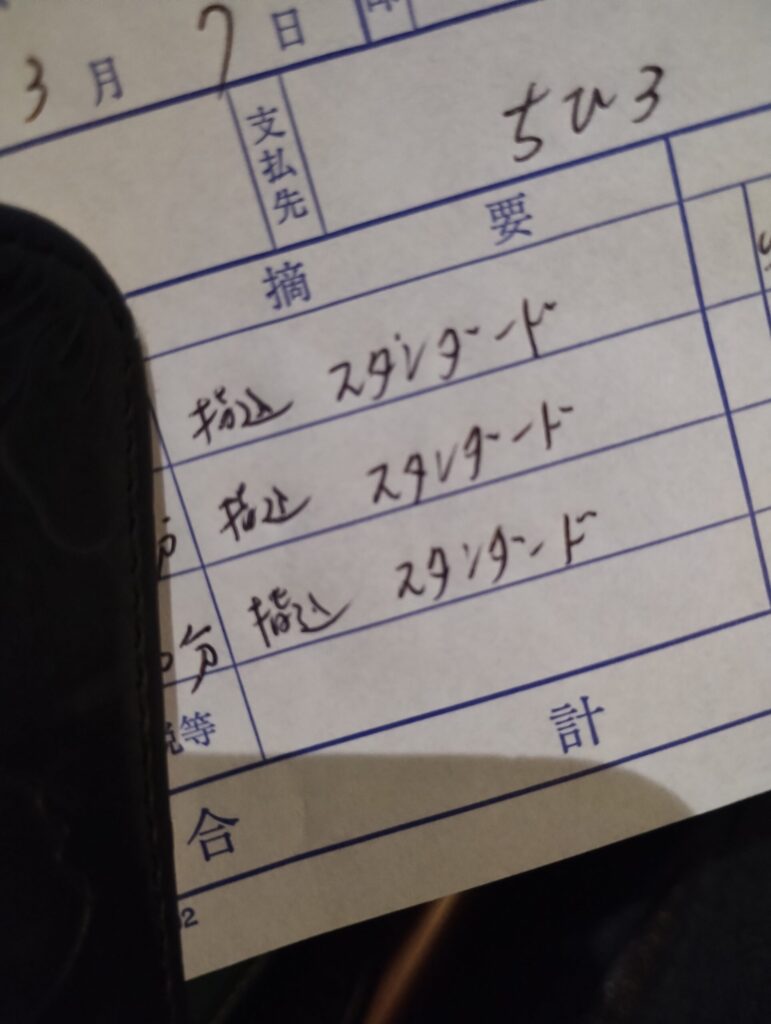 3月7日
支払先 ちひろ
摘要
指込 スタンダード
分 指込 スタンダード
分 指込 スタンダード
税等
合計
2